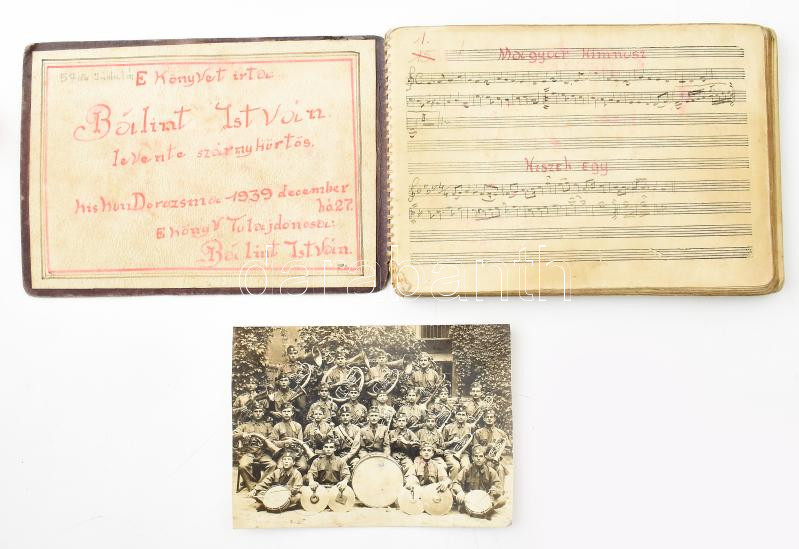 E Könyvet irta
Bálint István.
levente szárnykürtös.
kiskun Dorozsma 1939 december
hó 27.
E könyv Tulajdonosa:
Bálint István.
1.
Magyar Himnusz
Hiszek egy
darabanth